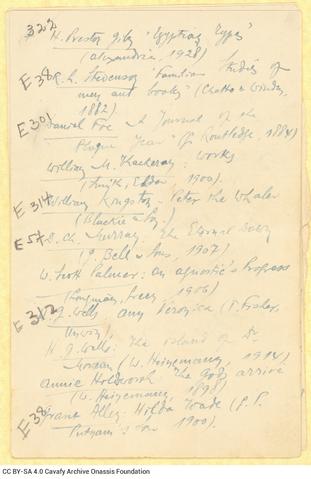 322
H. Preston "Egyptian Types"
(Alexandria, 1928)
E 38 R. L. Stevenson "Familiar Studies of
men and books" (Chatto & Windus,
1882)
E 301
Daniel Foe "A Journal of the
Plague Year" (G. Routledge, 1884)
William M. Thackeray: Works
(Smith, Elder 1900).
E 314 William Kingston - Peter the Whaler
(Blackie & Son.)
E 57 D. Ch. Murray: The Eternal
(G. Bell & Sons, 1907)
W. Scott Palmer: An agnostic's Progress
(Longmans, Green, 1906)
E 312
H. G. Wells Ann Veronica (T. Fisher
Unwin),
H. G. Wells: The island of Dr
Moreau (W. Heinemann, 1914)
Annie Holdsworth "The Gods arrive
(W. Heinemann, 1898)
E 38
Grant Allen: Hilda Wade (G. P.
Putnam's Son 1900).
CC BY-SA 4.0 Cavafy Archive Onassis Foundation